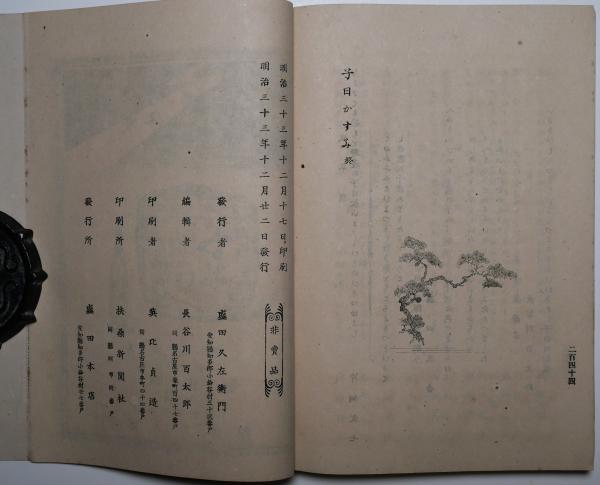 子日かすみ 終
二百四十四
明治三十三年十二月十七日印刷
明治三十三年十二月廿二日發行
非賣品
發行者 盛田久左衛門
愛知縣知多郡小鈴谷村
編輯者 長谷川百太郎
同縣名古屋市
印刷者
同縣名古屋市
印刷所 扶桑新聞社
發行所 盛田本店
愛知縣知多郡小鈴谷村